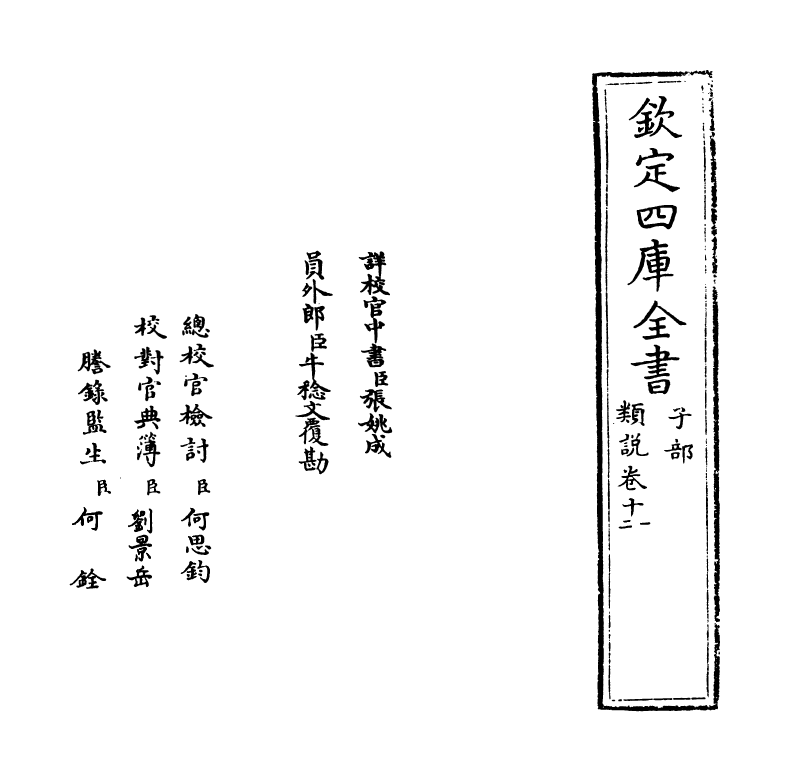 欽定四庫全書
子部
類説卷十一二
詳校官中書臣張姚成
員外郎臣牛稔文覆勘
總校官檢討臣何思鈞
校對官典簿臣劉景岳
謄錄監生臣何銓